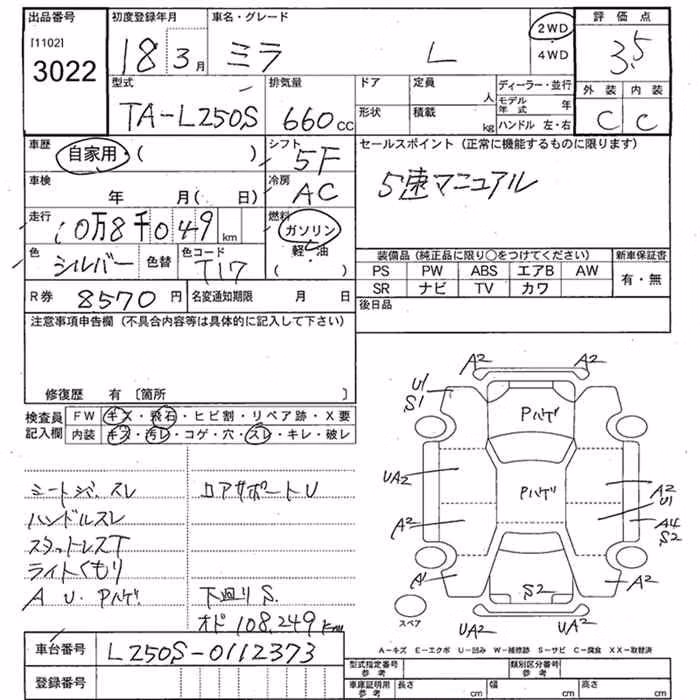 出品番号
[1102]
3022
初度登録年月
18 3月
車名・グレード
ミラ L
2WD
・
4WD
評価点
3.5
外装 内装
C C
型式
TA-L250S
排気量
660cc
ドア
形状
定員
人
積載
kg
ディーラー・並行
モデル年式 年
ハンドル 左・右
車歴
自家用・( )
シフト
5F
車検
年 月( 日)
冷房
AC
走行
10万8千049km
燃料
ガソリン
軽・油
( ・ )
色
シルバー
色替
色コード
T17
R券 8570円
名変通知期限 月 日
セールスポイント (正常に機能するものに限ります)
5速マニュアル
装備品 (純正品に限り○をつけてください)
新車保証書
PS PW ABS エアB AW
SR ナビ TV カワ
有・無
後日品
注意事項申告欄 (不具合内容等は具体的に記入して下さい)
修復歴 有 〔箇所 〕
検査員
記入欄
FW キズ・飛石・ヒビ割・リペア跡・X要
内装 キズ・汚レ・コゲ・穴・スレ・キレ・破レ
シートシバ、スレ
ハンドルスレ
スタットレスT
ライトくもり
A U. Pハゲ
コアサポートU
下廻りS.
オド 108,249km
A2 A2
U1
S1
Pハゲ
UA2
Pハゲ
A2
U1
A2
A4
S2
A1
A2
S2
UA2 UA2
スペア
A－キズ E－エクボ U－凹み W－補修跡 S－サビ C－腐食 XX－取替済
車台番号
L250S-0112373
登録番号
型式指定番号
参考
類別区分番号
参考
車庫証明用
参考
長さ cm
幅 cm
高さ cm